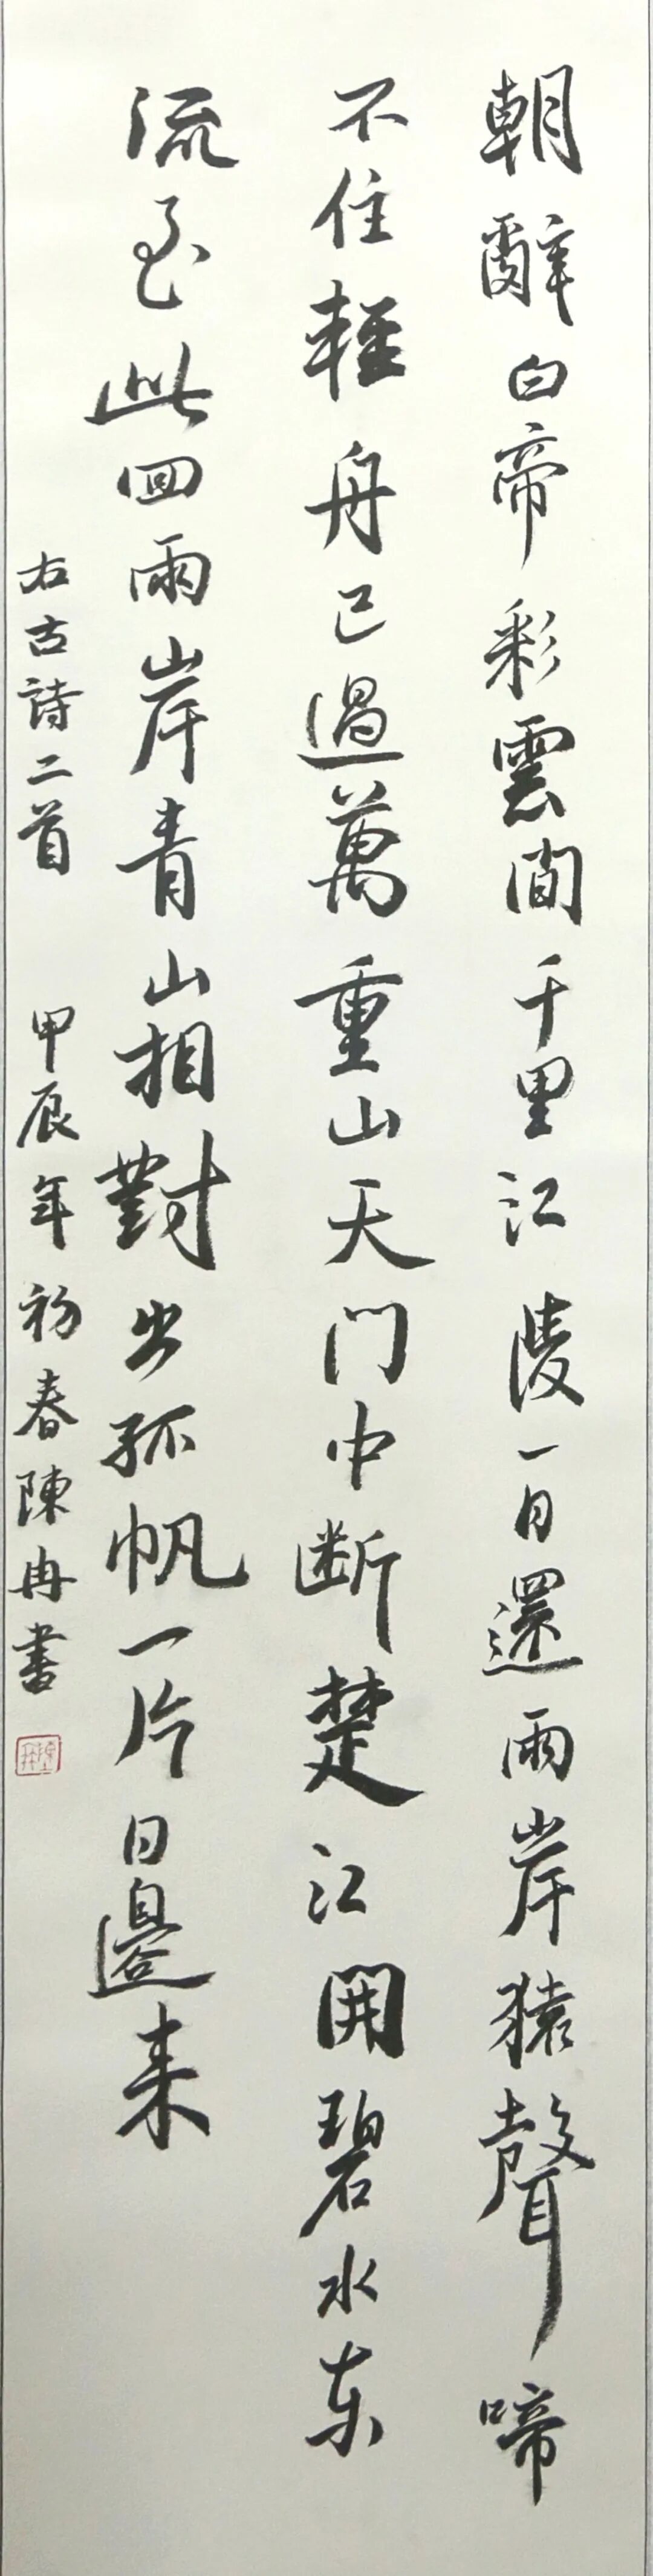 朝辭白帝彩雲間千里江陵一日還兩岸猿聲啼
不住輕舟已過萬重山天门中断楚江開碧水东
流至此回兩岸青山相對出孤帆一片日邊来
右古詩二首 甲辰年初春陳冉書
陳冉